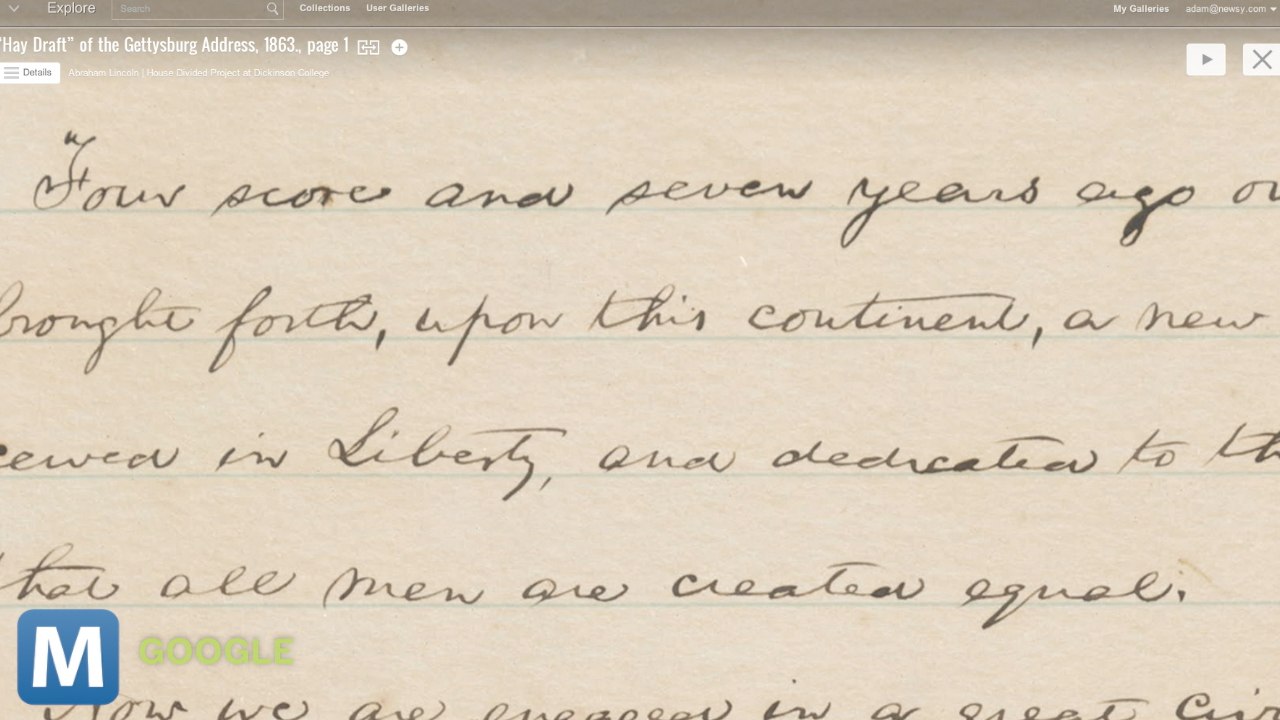 Explore Search Collections User Galleries My Galleries adam@newsy.com
"Hay Draft" of the Gettysburg Address, 1863., page 1
Details Abraham Lincoln | House Divided Project at Dickinson College
"Four score and seven years ago ou
brought forth, upon this continent, a new
ceived in Liberty, and dedicated to th
that all men are created equal.
M GOOGLE
Now we are engaged in a great civi